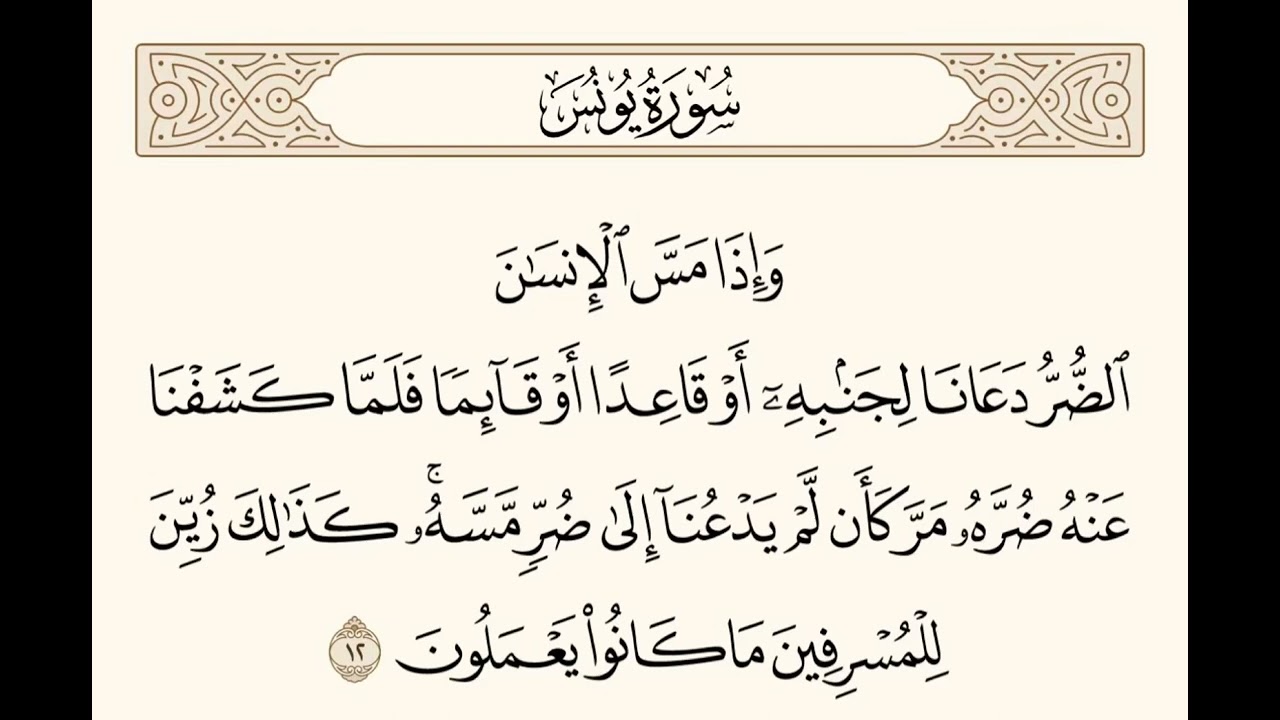 سُورَةُ يُونُسَ
وَإِذَا مَسَّ ٱلْإِنسَـٰنَ
ٱلضُّرُّ دَعَانَا لِجَنۢبِهِۦٓ أَوْ قَاعِدًا أَوْ قَآئِمًا فَلَمَّا كَشَفْنَا
عَنْهُ ضُرَّهُۥ مَرَّ كَأَن لَّمْ يَدْعُنَآ إِلَىٰ ضُرٍّ مَّسَّهُۥ ۚ كَذَٰلِكَ زُيِّنَ
لِلْمُسْرِفِينَ مَا كَانُوا۟ يَعْمَلُونَ ١٢